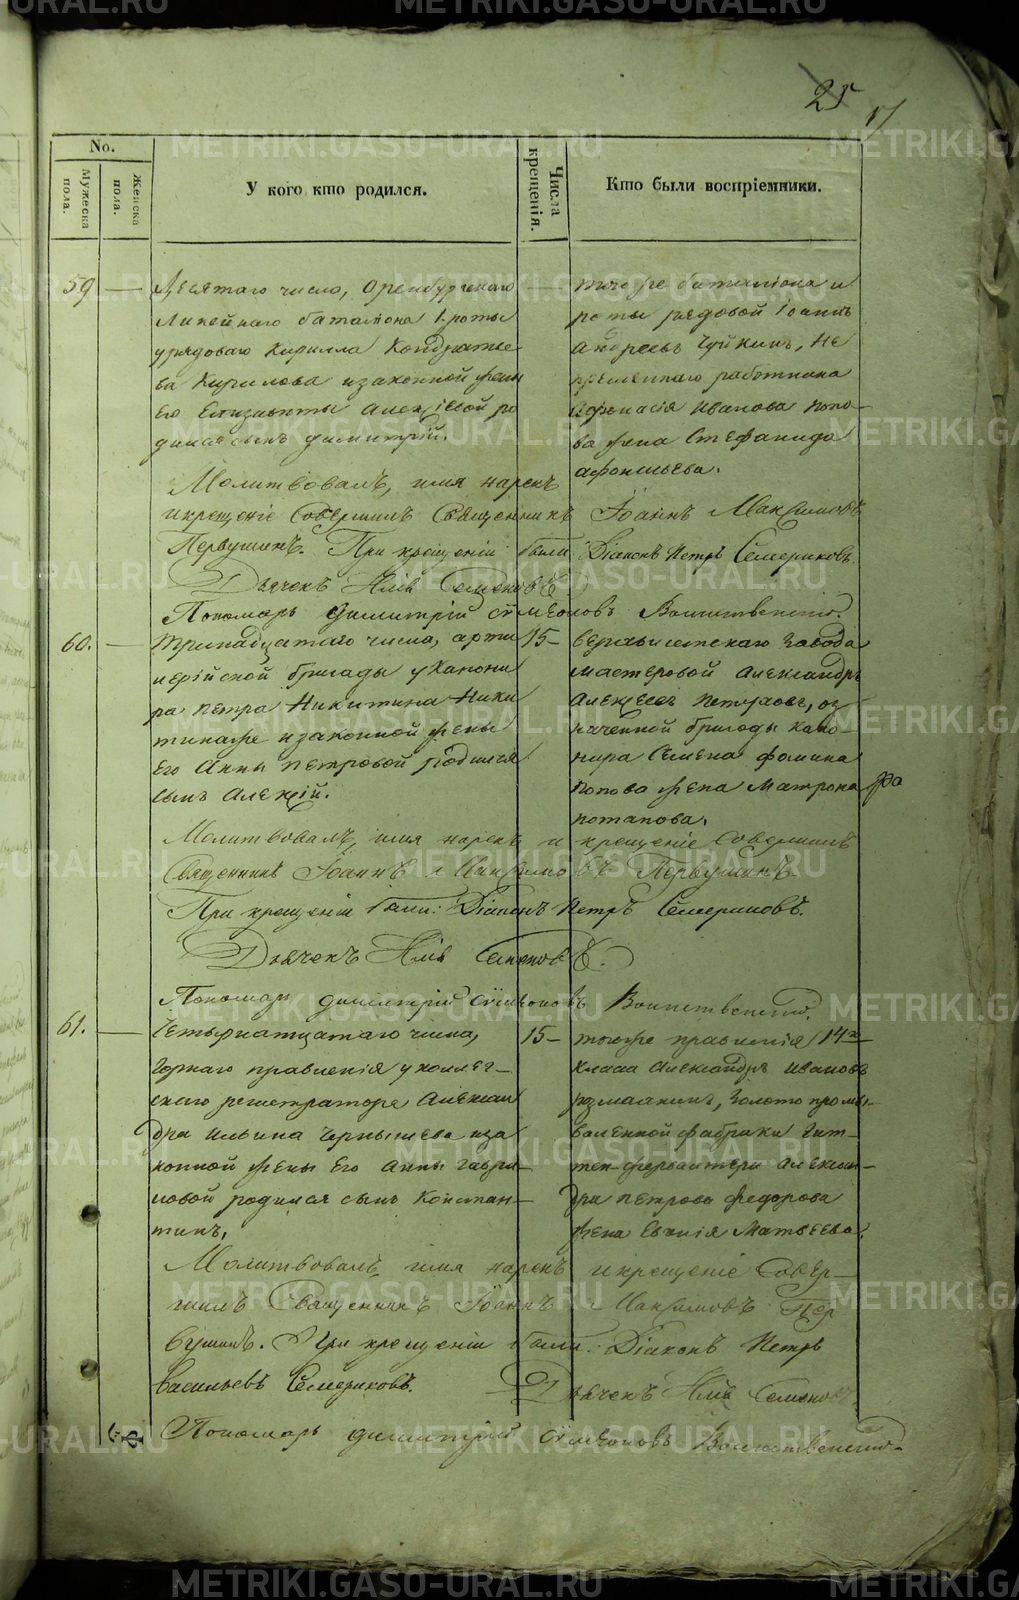 METRIKI.GASO-URAL.RU
25
17
No.
Мужеска пола.
Женска пола.
У кого кто родился.
Числа крещенія.
Кто были воспріемники.
59
Десятаго число, Оренбургскаго
Линейнаго баталіона 1. роты
урядоваго Кирилла Кондратье-
ва Кирилова изаконной жены
Его Елизаветы Алексіевой ро
дился сынъ Димитрій.
тогоже баталіона и
роты рядовой Іоаннъ
Андреевъ Чуйкинъ,
работника
Афонасія Иванова Попо-
ва жена Стефанида
Афонасьева.
Молитвовалъ, имя нарекъ
икрещеніе Совершилъ Священникъ Іоаннъ Максимовъ
Первушинъ. При крещеніи были: Діаконъ Петръ Семериковъ.
Дьячекъ Семеновъ
Пономарь Димитрій Сѵмеоновъ Воинственскій.
60.
Тринадцатаго числа, арти
лерійской бригады у Канони
ра Петра Никитина Ники
тинаже изаконной жены
Его Анны Петровой родился
сынъ Алексій.
15
Верхъисетскаго Завода
мастеровой Александръ
Алексеевъ Петуховъ, оз
наченной бригады Кано-
нира Семена Фомина
Попова жена Матрона
Потапова.
Молитвовалъ, имя нарекъ и крещеніе Совершилъ
Священникъ Іоаннъ Максимовъ Первушинъ.
При крещеніи были: Діаконъ Петръ Семериковъ.
Дьячекъ Семеновъ.
Пономарь Димитрій Сѵмеоновъ Воинственскій.
61.
Четырнатцатаго числа,
Горнаго правленія у коллеж-
скаго регистратора Алексан
дра Ильина Чернышева иза
конной жены Его Анны Гаври-
ловой родился сынъ Констан-
тинъ,
15
тогоже правленія 14го
класса Александръ Ивановъ
Золото промы-
валенной фабрики Гит-
тен-фервалтера Алексан-
дра Петрова Федорова
жена Евгнія Матвеева.
Молитвовалъ, имя нарекъ икрещеніе Совер-
шилъ Священникъ Іоаннъ Максимовъ Пер
вушинъ. При крещеніи были: Діаконъ Петръ
Васильевъ Семериковъ. Дьячекъ Семеновъ
Пономарь Димитрій Сѵмеоновъ Воинственскій.